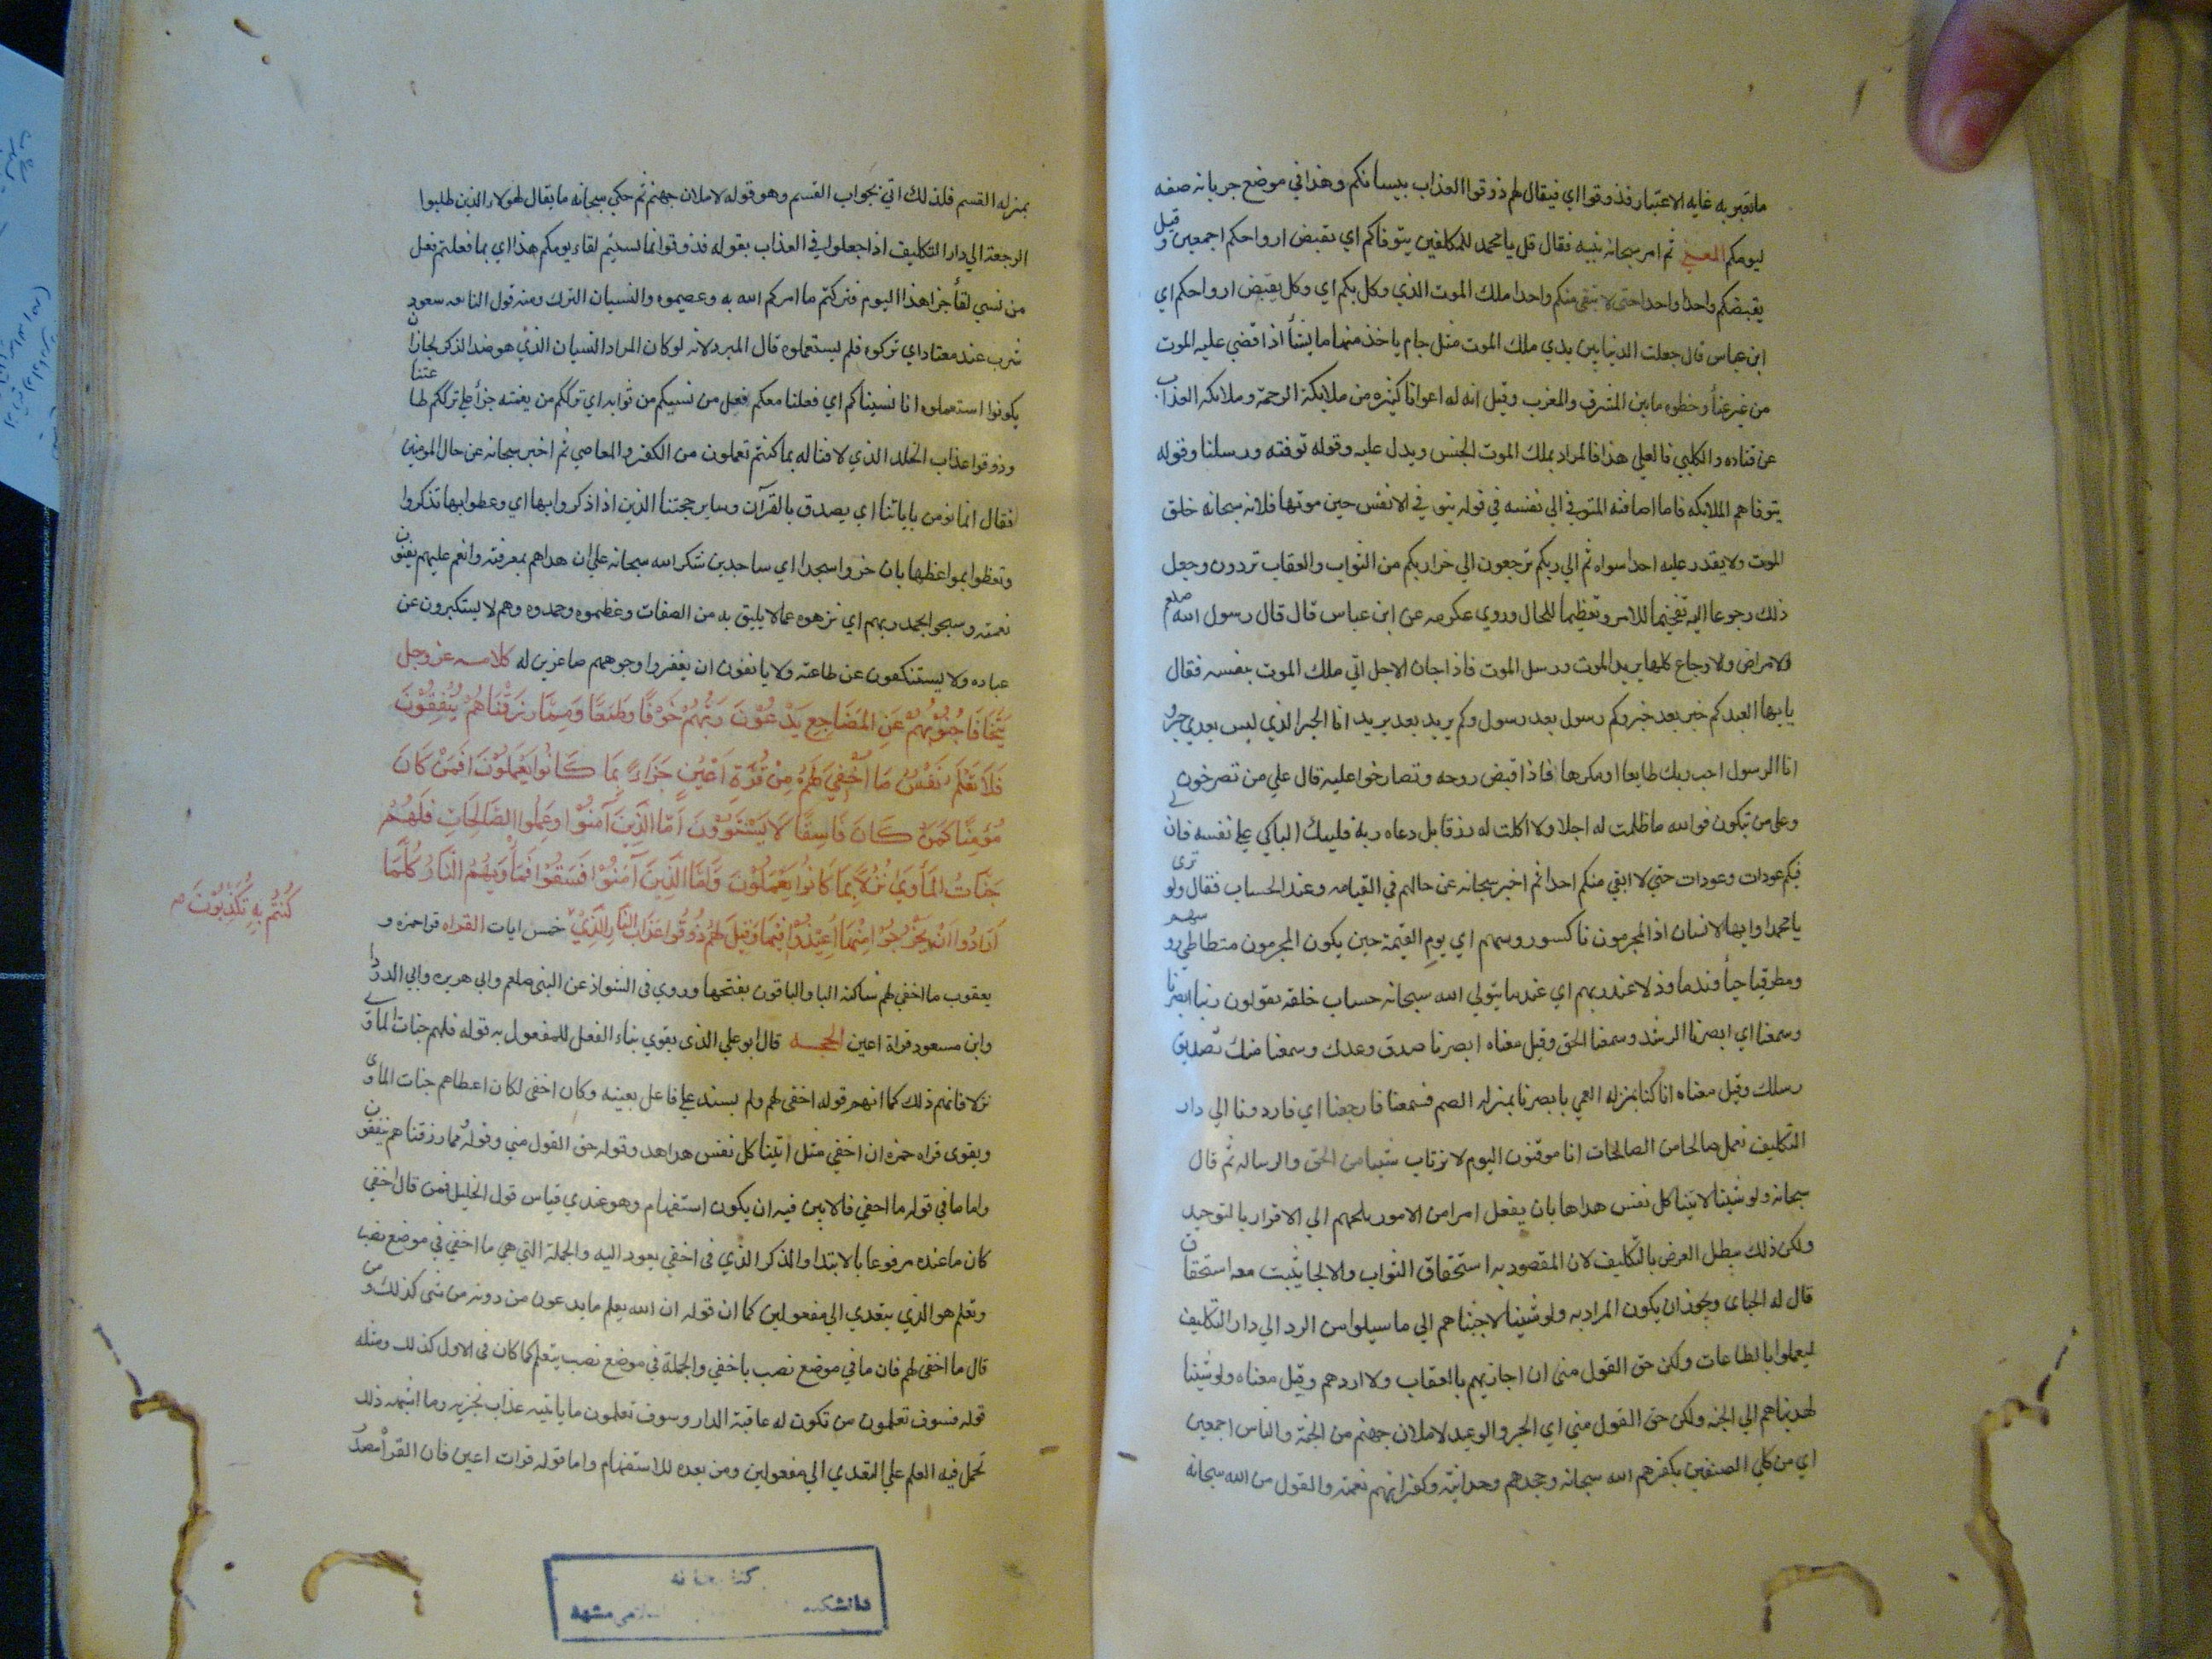 ما تعبر به غايه الاعتبار فذوقوا اي فيقال لهم ذوقوا العذاب بنسيانكم وهذا في موضع جر بانه صفه
ليومكم المعني ثم امر سبحانه نبيه فقال قل يا محمد للمكلفين يتوفاكم اي يقبض ارواحكم اجمعين وقيل
يقبضكم واحدا واحدا حتي لا يبقي منكم واحدا ملك الموت الذي وكل بكم اي وكل بقبض ارواحكم اي
ابن عباس قال جعلت الدنيا بين يدي ملك الموت مثل جام ياخذ منها ما يشأ اذا قضي عليه الموت
من غير عنأ وخطوه ما بين المشرق والمغرب وقيل انه له اعوانا كثيره من ملايكة الرحمة وملايكه العذاب
عن قتاده والكلبي فالعلي هذا فالمراد بملك الموت الجنس ويدل عليه وقوله توفته ورسلنا وقوله
يتوفاهم الملايكه فاما اضافته المتوفي الي نفسه في قوله يتوفي الانفس حين موتها فلانه سبحانه خلق
الموت ولا يقدر عليه احد سواه ثم الي ربكم ترجعون الي جزا ربكم من الثواب والعقاب تردون وجعل
ذلك رجوعا اليه تفخيما للامر وتعظيما للحال وروي عكرمه عن ابن عباس قال قال رسول الله صلعم
الامراض والاوجاع كلها بريد الموت ورسل الموت فاذا جان الاجل اتي ملك الموت بنفسه فقال
يا يها العبد كم خبر بعد خبر وكم رسول بعد رسول وكم بريد بعد بريد انا الخبر الذي ليس بعدي خبر و
انا الرسول اجب ربك طايعا او مكرها فاذا قبض روحه وتصارخوا عليه قال علي من تصرخون
وعلي من تبكون فوالله ما ظلمت له اجلا ولا اكلت له رزقا بل دعاه ربه فليبك الباكي علي نفسه فان لي
فيكم عودات وعودات حتي لا ابقي منكم احدا ثم اخبر سبحانه عن حالهم في القيامه وعند الحساب فقال ولو تري
يا محمد او ايها الانسان اذ المجرمون ناكسو روسهم اي يوم القيمة حين يكون المجرمون متطاطي روسهم
ومطرقيها حيأ وندما وذلا عند ربهم اي عند ما يتولي الله سبحانه حساب خلقه يقولون ربنا ابصرنا
وسمعنا اي ابصرنا الرشد وسمعنا الحق وقيل معناه ابصرنا صدق وعدك وسمعنا منك تصديق
رسلك وقيل معناه انا كنا بمنزله العمي يا بصرنا بمنزله الصم فسمعنا فارجعنا اي فارددنا الي دار
التكليف نعمل صالحا من الصالحات انا موقنون اليوم لا نرتاب شيا من الحق والرساله ثم قال
سبحانه ولو شينا لاتينا كل نفس هداها بان يفعل امرا من الامور يلجهم الي الاقرار بالتوحيد
ولكن ذلك يبطل الغرض بالتكليف لان المقصود به استحقاق الثواب والالجا يثبت معه استحقاق
قال له الجباي ويجوز ان يكون المراد به ولو شينا لاجبناهم الي ما سيلوا من الرد الي دار التكليف
ليعملوا بالطاعات ولكن حق القول مني ان اجازيهم بالعقاب ولا اردهم وقيل معناه ولو شينا
لهديناهم الي الجنه ولكن حق القول مني اي الخبر والوعيد لاملان جهنم من الجنة والناس اجمعين
اي من كلي الصنفين بكفرهم الله سبحانه وجحدهم وحدانيته وكفرانهم نعمته والقول من الله سبحانه
بمنزله القسم فلذلك اتي بجواب القسم وهو قوله لاملان جهنم ثم حكي سبحانه ما يقال لهولاء الذين طلبوا
الرجعة الي دار التكليف اذا جعلوا في العذاب بقوله فذوقوا بما نسيتم لقاء يومكم هذا اي بما فعلتم فعل
من نسي لقأ جزا هذا اليوم فتركتم ما امركم الله به وعصيموه والنسيان الترك ومنه قول النابغه سعود
شرب عند مفتاد اي تركوه فلم يستعملوه قال المبرد لانه لو كان المراد النسيان الذي هو ضد الذكر لجاز ان
يكونوا استعملوه انا نسيناكم اي فعلنا معكم فعل من نسيكم من ثوابه اي ترككم من نعمته جزأ علي ترككم طاعتنا
وذوقوا عذاب الخلد الذي لا فنا له بما كنتم تعملون من الكفر والمعاصي ثم اخبر سبحانه عن حال المومنين
فقال انما يومن باياتنا اي يصدق بالقرآن وساير حجتنا الذين اذا ذكروا بها اي وعظوا بها تذكروا
وتعظوا بمواعظها بان خروا سجدا اي ساجدين شكر الله سبحانه علي ان هداهم بمعرفته وانعم عليهم بفنون
نعمته وسبحوا بحمد ربهم اي نزهوه عما لا يليق به من الصفات وعظموه وحمدوه وهم لا يستكبرون عن
عباده ولا يستنكفون عن طاعته ولا يانفون ان يغفروا وجوههم صاغرين له كلامـه عز وجل
يَتَجَافَا جُنُوْبُهُمْ عَنِ المَضَاجِعِ يَدْعُوْنَ رَبَّهُمْ خَوْفًا وطَمَعًا وَمِمَّا رَزَقْنَاهُمْ يُنْفِقُوْنَ
فَلَا تَعْلَمُ نَفْسٌ مَا اُخْفِيَ لَهُمْ مِنْ قُرَّةِ اَعْيُنٍ جَزَاءً بِمَا كَانُوا يَعْمَلُوْنَ اَفَمَنْ كَانَ
مُؤْمِنًا كَمَنْ كَانَ فَاسِقًا لَا يَسْتَوُوْنَ اَمَّا الَّذِيْنَ آمَنُوْا وَعَمِلُوا الصَّالِحَاتِ فَلَهُمْ
جَنَّاتُ المَأْوَي نُزُلًا بِمَا كَانُوا يَعْمَلُوْنَ وَاَمَّا الَّذِيْنَ آمَنُوْا فَسَقُوْا فَمَأْوَيهُمُ النَّارُ كُلَّمَا
اَرَادُوا اَنْ يَخْرُجُوْا مِنْهَا اُعِيْدُوْا فِيْهَا وَقِيْلَ لَهُمْ ذُوْقُوا عَذَابَ النَّارِ الَّذِيْ خمس ايات القراه قرا حمزه و
كُنْتُمْ بِهِ تُكَذِّبُوْنَ
يعقوب ما اخفي لهم ساكنه اليا والباقون بفتحها وروي في الشواذ عن النبي صلعم وابي هريره وابي الدردا
وابن مسعود قراة اعين الحجـه قال ابو علي الذي يقوي بناء الفعل للمفعول به قوله فلهم جنات الماوي
نزلا فانهم ذلك كما انهم قوله اخفي لهم ولم يسند علي فاعل بعينه وكان اخفي لكان اعطاهم جنات الماوي
ويقوي قراه حمزه ان اخفي مثل اتينا كل نفس هداها وقوله حق القول مني وقوله مما رزقناهم ينفقون
واما ما في قوله ما اخفي فالابين فيه ان يكون استفهام وهو عندي قياس قول الخليل فمن قال اخفي
كان ما عنده مرفوعا بالابتدا والذكر الذي في اخفي يعود اليه والجملة التي هي ما اخفي في موضع نصب
وتعلم هو الذي يتعدي الي مفعولين كما ان قوله ان الله يعلم ما يدعون من دونه من شي كذلك ومن
قال ما اخفي لهم فان ما في موضع نصب باخفي والجملة في موضع نصب بتعلم كما كان في الاول كذلك ومثله
قوله فسوف تعلمون من تكون له عاقبة الدار وسوف تعلمون ما ياتيه عذاب يخزيه وما اشبهه ذلك
تحمل فيه العلم علي المتعدي الي مفعولين ومن بعده للاستفهام واما قوله قرات اعين فان القرأ مصدر
كتابخانه
دانشکده مشهد